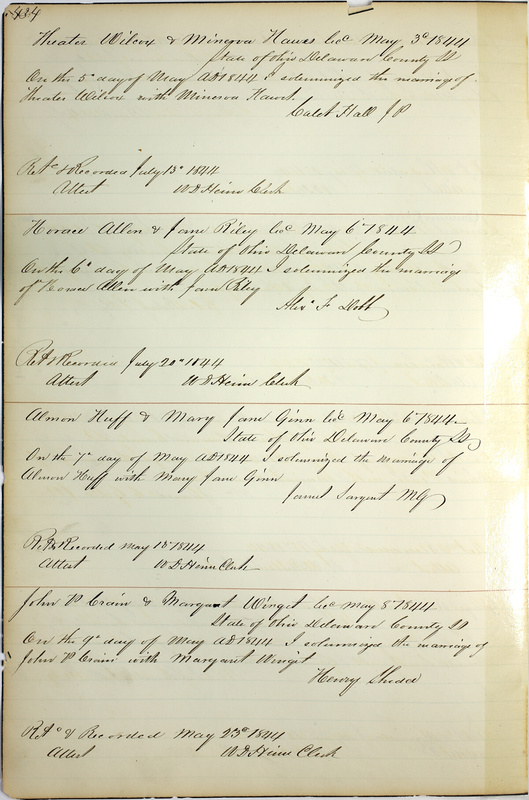 434
Theater Wilcox & Minerva Hawes Licd May 3d 1844
State of Ohio Delaware County SS
On the 5th day of May AD 1844 I solemnized the marriage of
Theater Wilcox with Minerva Hawes.
Caleb Hall JP
Retd & Recorded July 13th 1844
Attest W D Heim Clerk
Horace Allen & Jane Riley Licd May 6th 1844
State of Ohio Delaware County SS
On the 6th day of May AD 1844 I solemnized the marriage
of Horace Allen with Jane Riley
F
Retd & Recorded July 20th 1844
Attest W D Heim Clerk
Almon Huff & Mary Jane Ginn Licd May 6th 1844
State of Ohio Delaware County SS
On the 7th day of May AD 1844 I solemnized the marriage of
Almon Huff with Mary Jane Ginn
James Sargent MG
Retd & Recorded May 18th 1844
Attest W D Heim Clerk
John P Crain & Margaret Winget Licd May 8th 1844
State of Ohio Delaware County SS
On the 9th day of May AD 1844 I solemnized the marriage of
John P Crain with Margaret Winget
Henry Shedd
Retd & Recorded May 23d 1844
Attest W D Heim Clerk